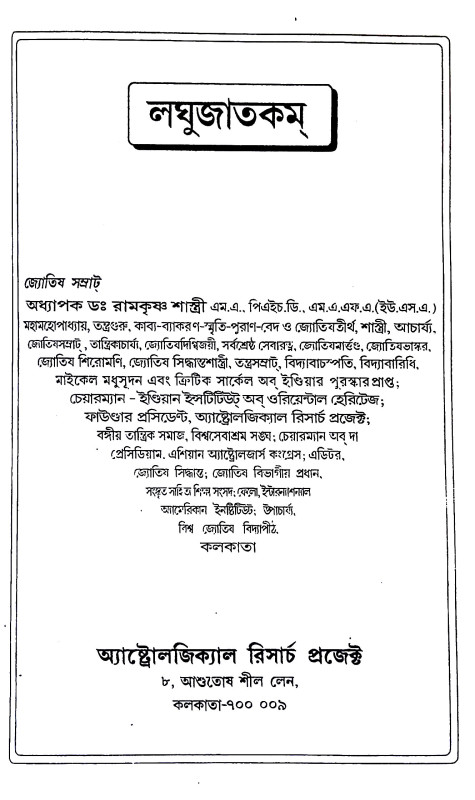 লঘুজাতকম্
জ্যোতিষ সম্রাট্
অধ্যাপক ডঃ রামকৃষ্ণ শাস্ত্রী এম.এ., পিএইচ.ডি., এম.এ.এফ.এ.(ইউ.এস.এ.)
মহামহোপাধ্যায়, তন্ত্রগুরু, কাব্য-ব্যাকরণ-স্মৃতি-পুরাণ-বেদ ও জ্যোতিষতীর্থ, শাস্ত্রী, আচার্য্য,
জোতিষসম্রাট্, তান্ত্রিকাচার্য্য, জ্যোতিষদিগ্বিজয়ী, সর্বশ্রেষ্ঠ সেবারত্ন, জ্যোতিষমার্তণ্ড, জ্যোতিষভাস্কর,
জ্যোতিষ শিরোমণি, জ্যোতিষ সিদ্ধান্তশাস্ত্রী, তন্ত্রসম্রাট্, বিদ্যাবাচস্পতি, বিদ্যাবারিধি,
মাইকেল মধুসূদন এবং ক্রিটিক সার্কেল অব্ ইণ্ডিয়ার পুরস্কার প্রাপ্ত;
চেয়ারম্যান – ইণ্ডিয়ান ইন্সটিটিউট্ অব্ ওরিয়েন্টাল হেরিটেজ;
ফাউণ্ডার প্রসিডেন্ট, অ্যাষ্ট্রোলজিক্যাল রিসার্চ প্রজেক্ট;
বঙ্গীয় তান্ত্রিক সমাজ, বিশ্বসেবাশ্রম সঙ্ঘ; চেয়ারম্যান অব্ দা
প্রেসিডিয়াম, এশিয়ান অ্যাষ্ট্রোলজার্স কংগ্রেস; এডিটর,
জ্যোতিষ সিদ্ধান্ত; জ্যোতিষ বিভাগীয় প্রধান,
সংস্কৃত সাহিত্য শিক্ষা সংসদ; ফেলো, ইন্টারন্যাশন্যাল
অ্যামেরিকান ইনষ্টিটিউট; উপাচার্য্য,
বিশ্ব জ্যোতিষ বিদ্যাপীঠ,
কলকাতা
অ্যাষ্ট্রোলজিক্যাল রিসার্চ প্রজেক্ট
৮, আশুতোষ শীল লেন,
কলকাতা-৭০০ ০০৯